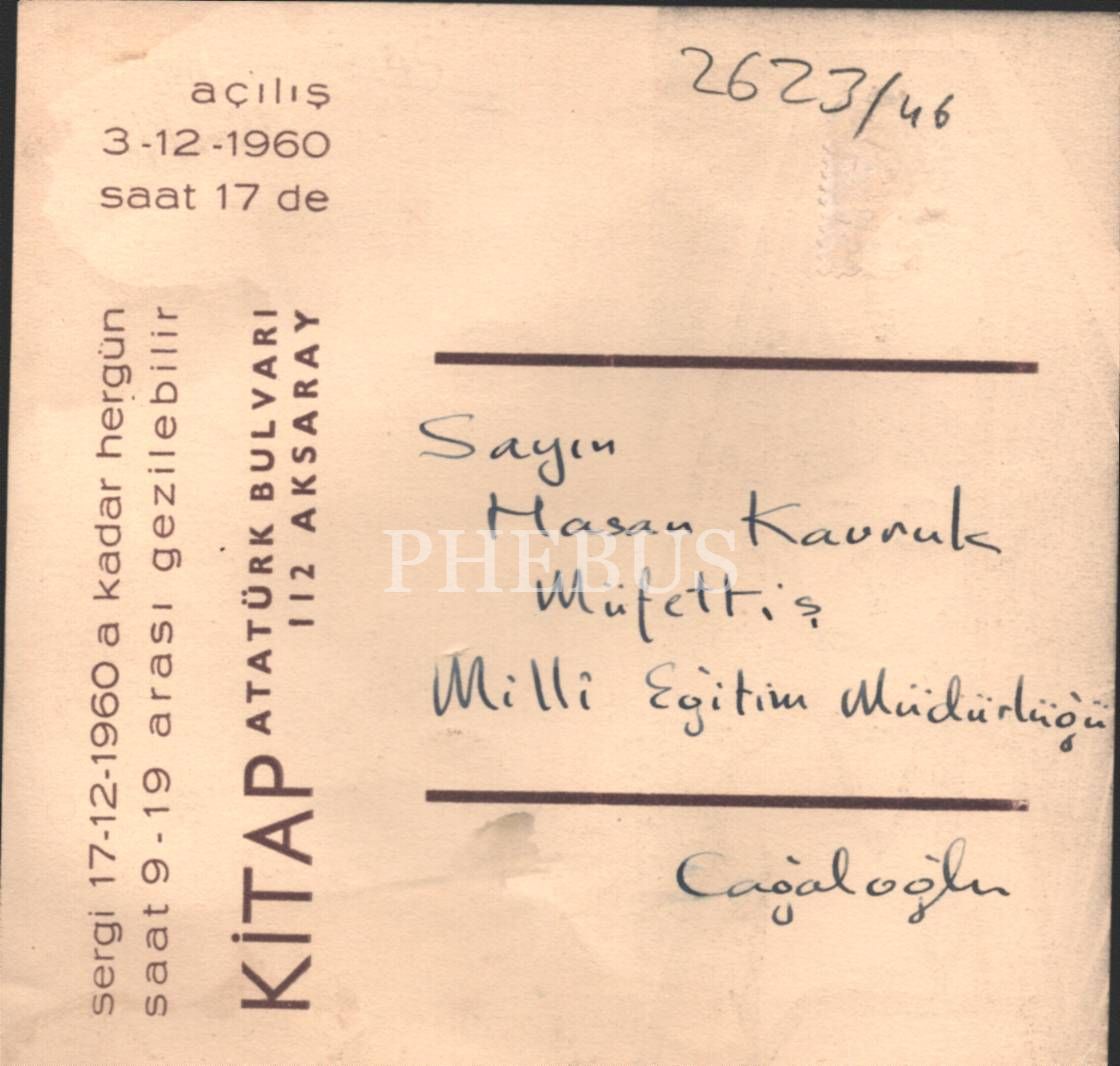 açılış
3-12-1960
saat 17 de
2623/46
sergi 17-12-1960 a kadar hergün
saat 9-19 arası gezilebilir
KİTAP ATATÜRK BULVARI
112 AKSARAY
Sayın
Hasan Kavruk
Müfettiş
Millî Eğitim Müdürlüğü
Cağaloğlu
PHEBUS